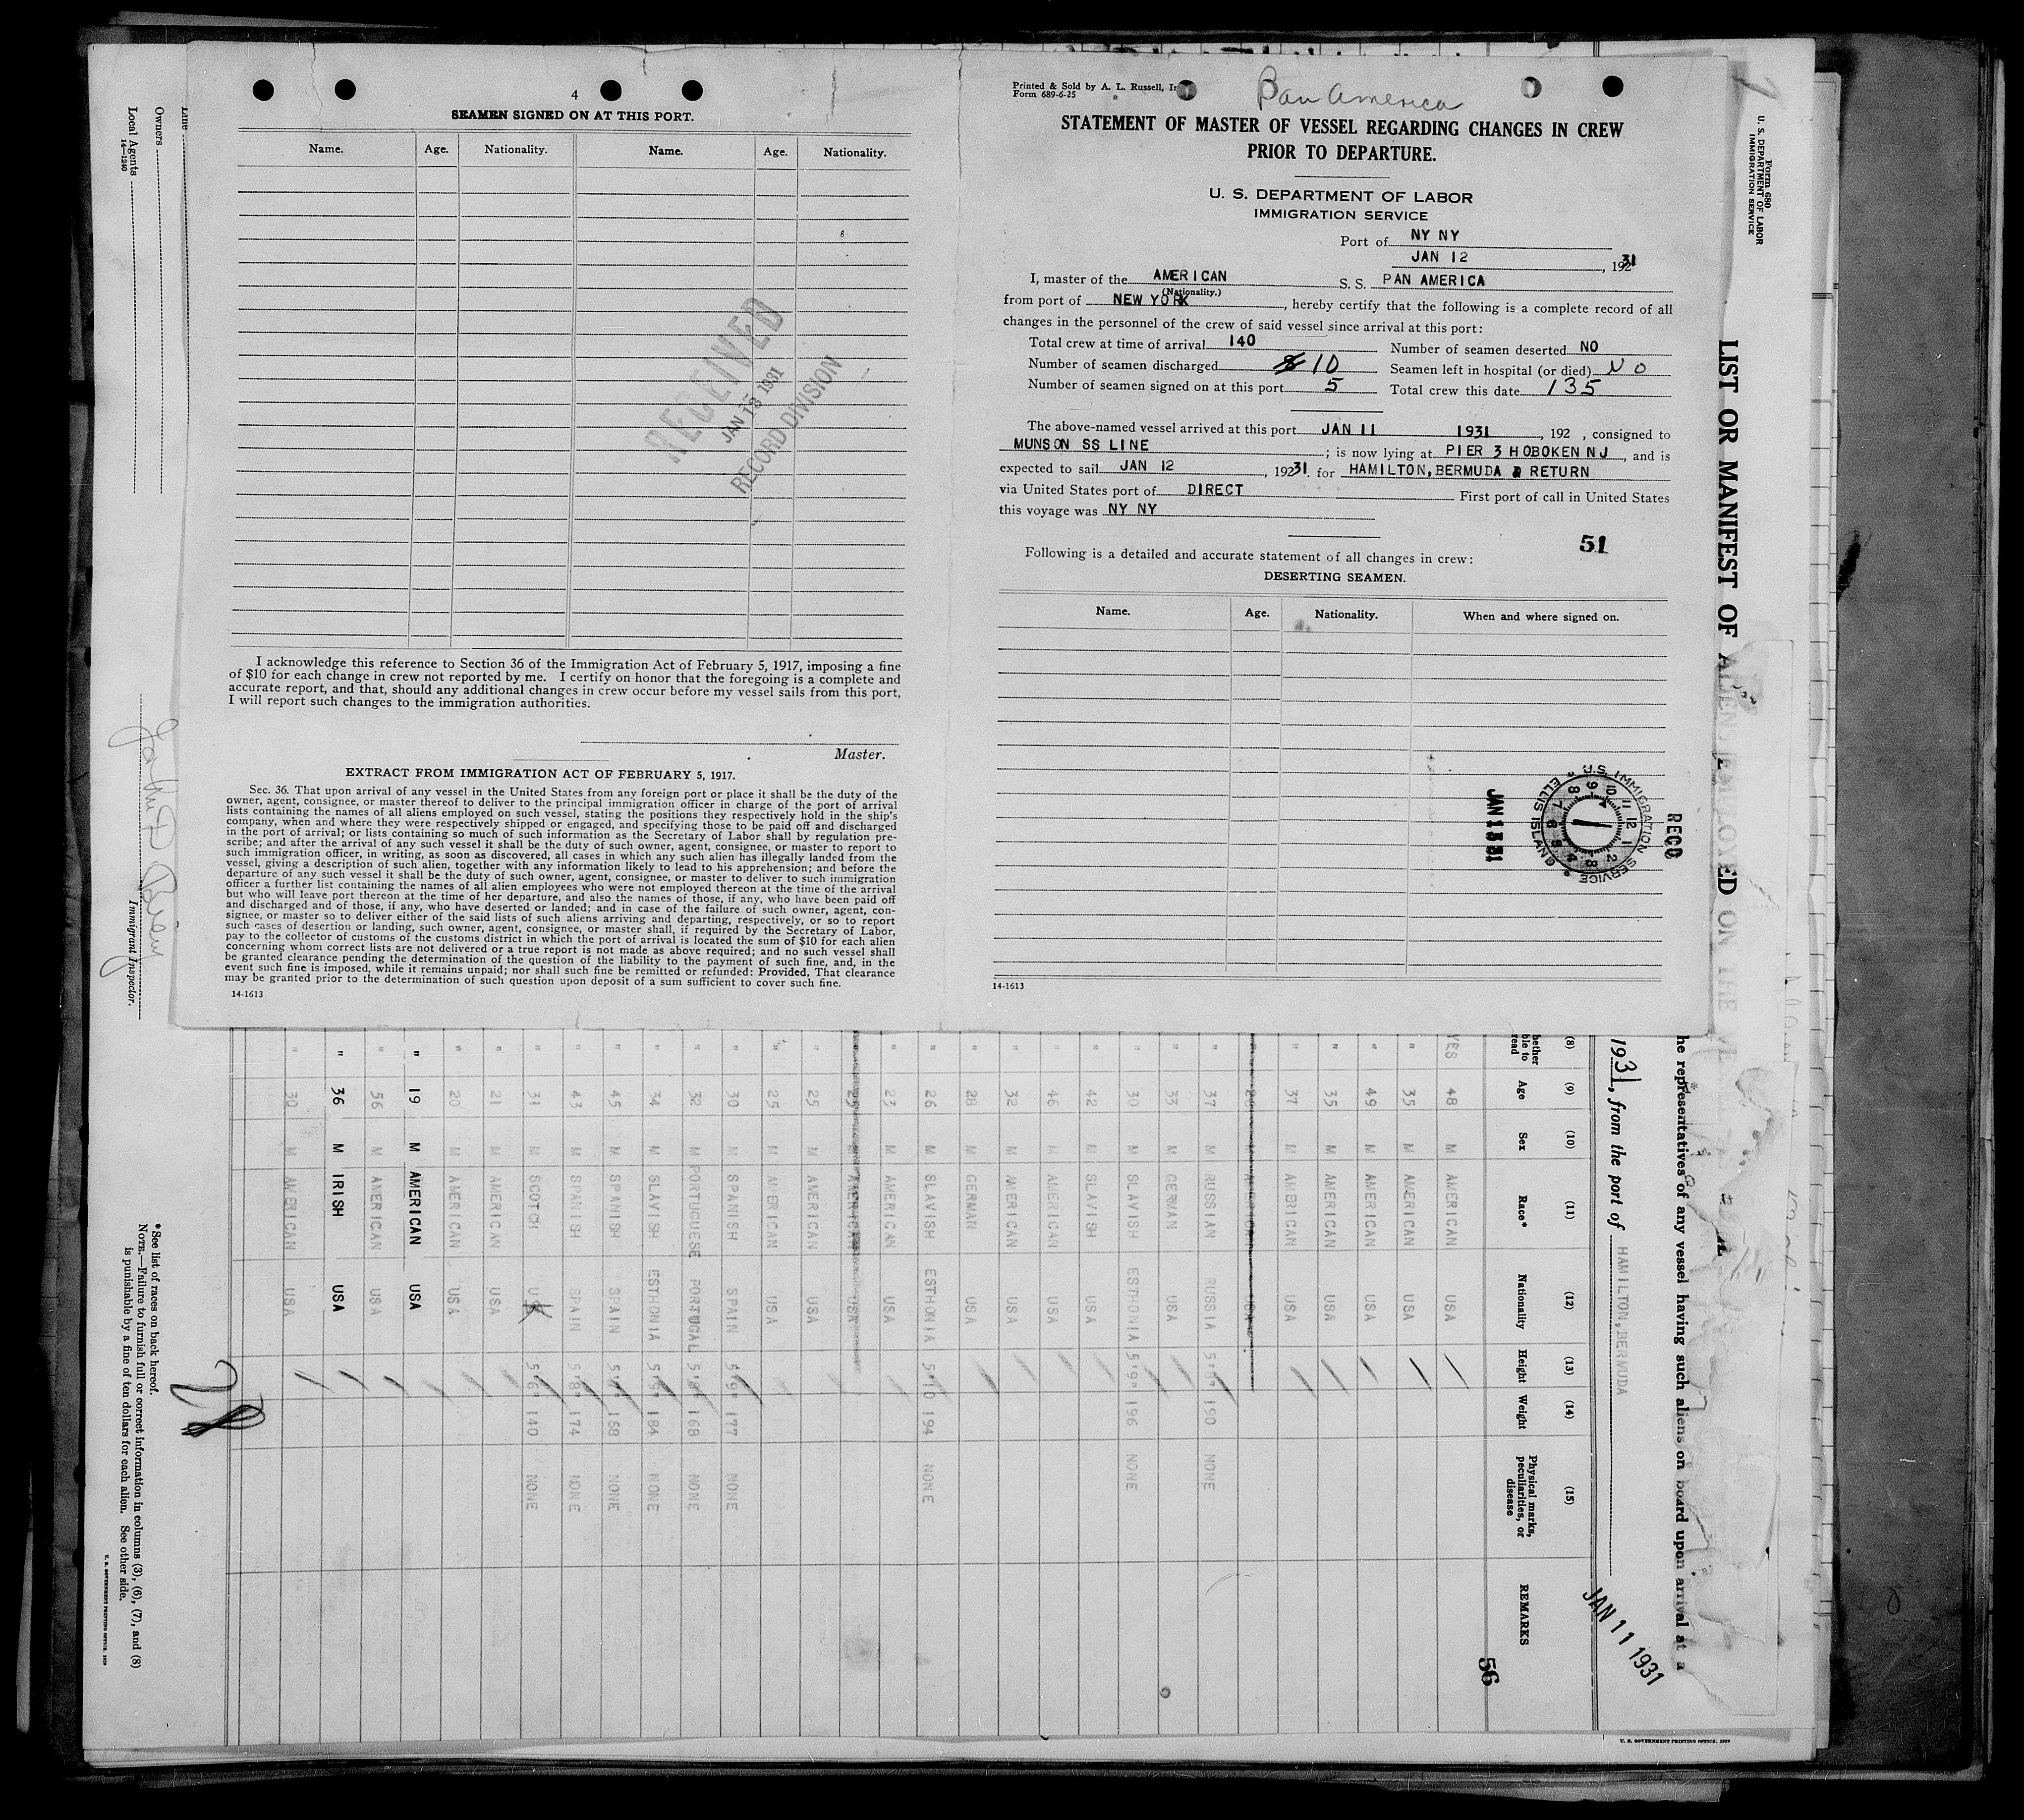 4
SEAMEN SIGNED ON AT THIS PORT.
Name. Age. Nationality. Name. Age. Nationality.
RECEIVED
JAN 13 1931
RECORD DIVISION
I acknowledge this reference to Section 36 of the Immigration Act of February 5, 1917, imposing a fine
of $10 for each change in crew not reported by me. I certify on honor that the foregoing is a complete and
accurate report, and that, should any additional changes in crew occur before my vessel sails from this port,
I will report such changes to the immigration authorities.
Master.
EXTRACT FROM IMMIGRATION ACT OF FEBRUARY 5, 1917.
Sec. 36. That upon arrival of any vessel in the United States from any foreign port or place it shall be the duty of the
owner, agent, consignee, or master thereof to deliver to the principal immigration officer in charge of the port of arrival
lists containing the names of all aliens employed on such vessel, stating the positions they respectively hold in the ship's
company, when and where they were respectively shipped or engaged, and specifying those to be paid off and discharged
in the port of arrival; or lists containing so much of such information as the Secretary of Labor shall by regulation pre-
scribe; and after the arrival of any such vessel it shall be the duty of such owner, agent, consignee, or master to report to
such immigration officer, in writing, as soon as discovered, all cases in which any such alien has illegally landed from the
vessel, giving a description of such alien, together with any information likely to lead to his apprehension; and before the
departure of any such vessel it shall be the duty of such owner, agent, consignee, or master to deliver to such immigration
officer a further list containing the names of all alien employees who were not employed thereon at the time of the arrival
but who will leave port thereon at the time of her departure, and also the names of those, if any, who have been paid off
and discharged and of those, if any, who have deserted or landed; and in case of the failure of such owner, agent, con-
signee, or master so to deliver either of the said lists of such aliens arriving and departing, respectively, or so to report
such cases of desertion or landing, such owner, agent, consignee, or master shall, if required by the Secretary of Labor,
pay to the collector of customs of the customs district in which the port of arrival is located the sum of $10 for each alien
concerning whom correct lists are not delivered or a true report is not made as above required; and no such vessel shall
be granted clearance pending the determination of the question of the liability to the payment of such fine, and, in the
event such fine is imposed, while it remains unpaid; nor shall such fine be remitted or refunded: Provided, That clearance
may be granted prior to the determination of such question upon deposit of a sum sufficient to cover such fine.
14-1613
Printed & Sold by A. L. Russell,
Form 689-6-25
Pan America
STATEMENT OF MASTER OF VESSEL REGARDING CHANGES IN CREW
PRIOR TO DEPARTURE.
U. S. DEPARTMENT OF LABOR
IMMIGRATION SERVICE
Port of NY NY
JAN 12, 1931
I, master of the AMERICAN S. S. PAN AMERICA
(Nationality.)
from port of NEW YORK, hereby certify that the following is a complete record of all
changes in the personnel of the crew of said vessel since arrival at this port:
Total crew at time of arrival 140 Number of seamen deserted NO
Number of seamen discharged 10 Seamen left in hospital (or died) NO
Number of seamen signed on at this port 5 Total crew this date 135
The above-named vessel arrived at this port JAN 11 1931, 192 , consigned to
MUNSON SS LINE; is now lying at PIER 3 HOBOKEN NJ, and is
expected to sail JAN 12, 19231. for HAMILTON, BERMUDA & RETURN
via United States port of DIRECT First port of call in United States
this voyage was NY NY
51
Following is a detailed and accurate statement of all changes in crew:
DESERTING SEAMEN.
Name. Age. Nationality. When and where signed on.
JAN 13 31
U.S. IMMIGRATION SERVICE
ELLIS ISLAND
RECD
14-1613
Form 680
U. S. DEPARTMENT OF LABOR
IMMIGRATION SERVICE
LIST OR MANIFEST OF ALIENS EMPLOYED ON THE
he representatives of any vessel having such aliens on board upon arrival at a
1931, from the port of HAMILTON, BERMUDA
JAN 11 1931
56
(8) (9) (10) (11) (12) (13) (14) (15)
Age Sex Race* Nationality Height Weight Physical marks, peculiarities, or disease REMARKS
YES 48 M AMERICAN USA
" 35 M AMERICAN USA
" 49 M AMERICAN USA
" 35 M AMERICAN USA
" 37 M AMERICAN USA
" 37 M RUSSIAN RUSSIA 5'8" 190 NONE
" 33 M GERMAN USA
" 30 M SLAVISH ESTHONIA 5'9" 196 NONE
" 42 M SLAVISH USA
" 46 M AMERICAN USA
" 32 M AMERICAN USA
" 28 M GERMAN USA
" 26 M SLAVISH ESTHONIA 5'10 194 NONE
" 23 M AMERICAN USA
" 25 M AMERICAN USA
" 25 M AMERICAN USA
" 25 M AMERICAN USA
" 30 M SPANISH SPAIN 5'9" 177 NONE
" 32 M PORTUGUESE PORTUGAL 5'8" 168 NONE
" 34 M SLAVISH ESTHONIA 5'9" 184 NONE
" 45 M SPANISH SPAIN 168 NONE
" 43 M SPANISH SPAIN 5'8" 174 NONE
" 31 M SCOTCH 5'6" 140 NONE
" 21 M AMERICAN USA
" 20 M AMERICAN USA
" 19 M AMERICAN USA
" 56 M AMERICAN USA
" 36 M IRISH USA
" 30 M AMERICAN USA
Line
Owners
Local Agents
14-1240
Immigrant Inspector.
*See list of races on back hereof.
NOTE.—Failure to furnish full or correct information in columns (3), (6), (7), and (8)
is punishable by a fine of ten dollars for each alien. See other side.
U. S. GOVERNMENT PRINTING OFFICE, 1929
U. S. GOVERNMENT PRINTING OFFICE, 1929